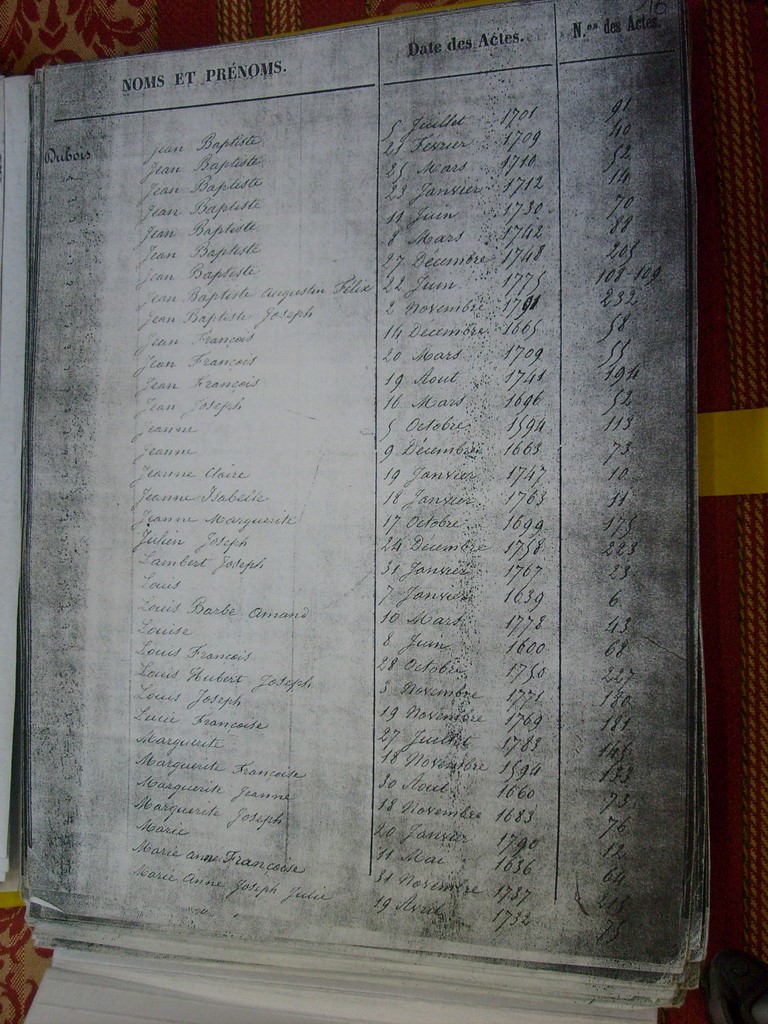 NOMS ET PRÉNOMS. Date des Actes. N.os des Actes.
Dubois Jean Baptiste 5 Juillet 1701 91
Jean Baptiste 21 Fevrier 1709 40
Jean Baptiste 25 Mars 1710 52
Jean Baptiste 23 Janvier 1712 14
Jean Baptiste 11 Juin 1730 70
Jean Baptiste 8 Mars 1742 88
Jean Baptiste 27 Décembre 1748 205
Jean Baptiste Augustin Félix 22 Juin 1775 108-109
Jean Baptiste Joseph 2 Novembre 1791 232
Jean François 14 Decembre 1665 58
Jean François 20 Mars 1709 55
Jean François 19 Aout 1741 194
Jean Joseph 16 Mars 1696 52
Jeanne 5 Octobre 1594 113
Jeanne 9 Décembre 1663 73
Jeanne Claire 19 Janvier 1747 10
Jeanne Isabelle 18 Janvier 1763 11
Jeanne Marguerite 17 Octobre 1699 175
Julien Joseph 24 Decembre 1758 223
Lambert Joseph 31 Janvier 1767 23
Louis 7 Janvier 1639 6
Louis Barbe Amand 10 Mars 1778 43
Louise 8 Juin 1600 68
Louis François 28 Octobre 1750 227
Louis Hubert Joseph 3 Novembre 1771 180
Louis Joseph 19 Novembre 1769 181
Lucie Françoise 27 Juillet 1783 145
Marguerite 18 Novembre 1594 133
Marguerite Françoise 30 Aout 1660 73
Marguerite Jeanne 18 Novembre 1683 76
Marguerite Joseph 20 Janvier 1790 12
Marie 11 Mai 1636 64
Marie Anne Françoise 31 Novembre 1737 215
Marie Anne Joseph Julie 19 Avril 1732 75